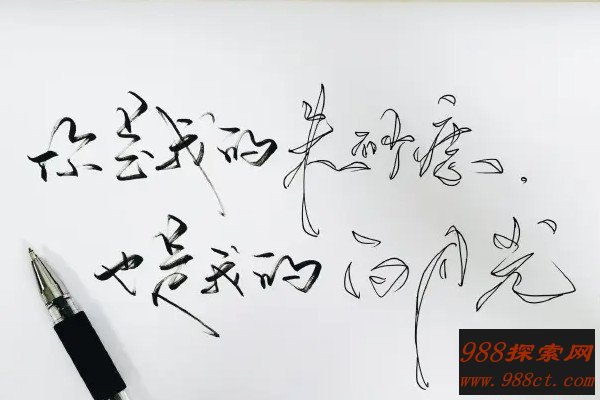 你是我的朱砂痣.
也是我的白月光
988探索网
www.988ct.com